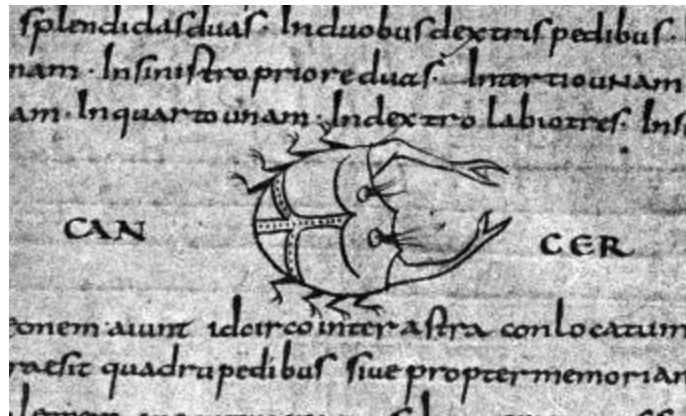 splendidas duas. In duobus dextris pedibus.
nam. In sinistro priore duas. In tertio unam
am. In quarto unam. In dextro labio tres. Ins
CAN CER
onem aiunt idcirco inter astra conlocatum
quadrupedibus siue propter memoriam